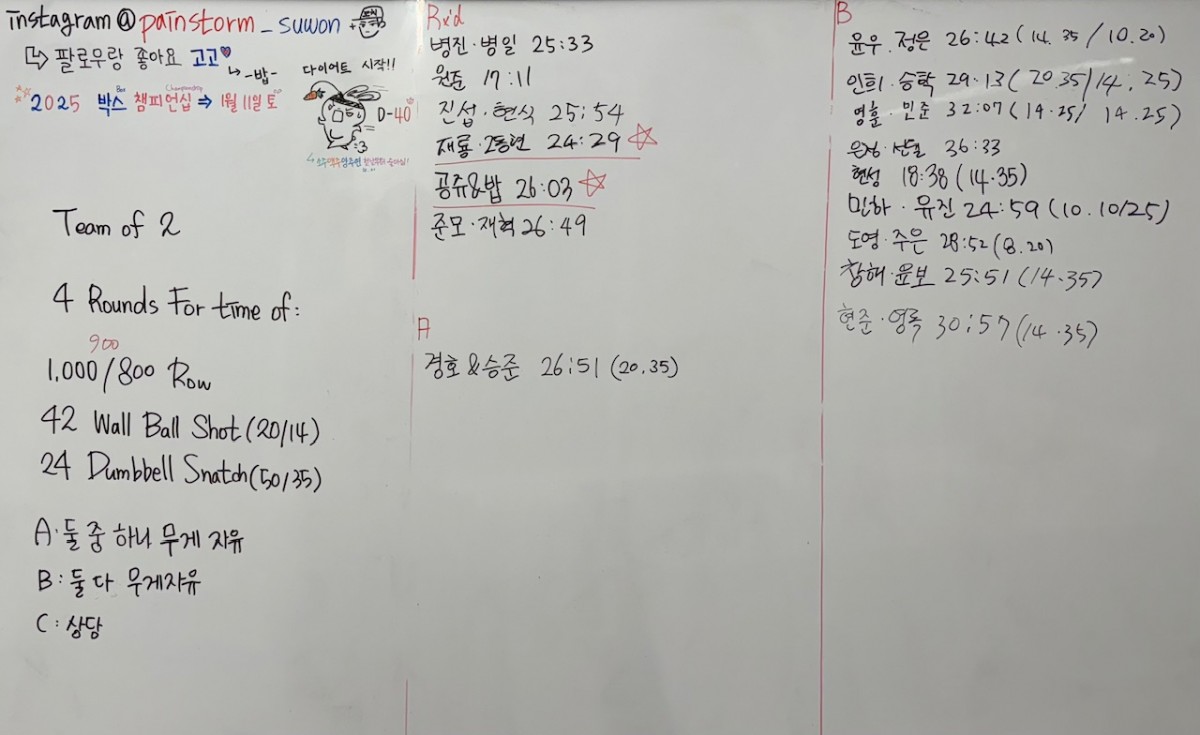 instagram@painstorm_suwon
팔로우랑 좋아요 고고
-밥-
Box Championship
2025 박스 챔피언십 ⇒ 1월 11일 토
다이어트 시작!!
D-40
:3
Team of 2
4 Rounds For time of:
900
1,000/800 Row
42 Wall Ball Shot (20/14)
24 Dumbbell Snatch (50/35)
A: 둘 중 하나 무게 자유
B: 둘 다 무게자유
C: 상담
Rx'd
병진·병일 25:33
원준 17:11
진섭·현식 25:54
재룡·2동현 24:29 ☆
공쥬&밥 26:03 ☆
준모·재혁 26:49
A
경호&승준 26:51 (20.35)
B
윤우·정은 26:42 (14.35/10.20)
인희·승탁 29:13 (20.35/14.25)
영훈·민준 32:07 (14.25/14.25)
36:33
현성 18:38 (14.35)
민하·유진 24:59 (10.10/25)
도영·주은 28:52 (8.20)
창해·윤보 25:51 (14.35)
현준·영록 30:57 (14.35)